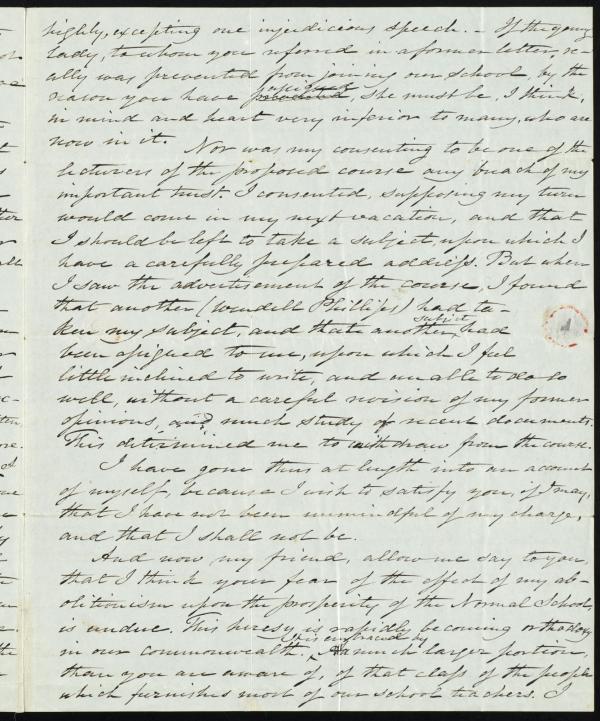 highly, excepting one injudicious speech. - If the young
lady, to whom you referred in a former letter, re-
ally was prevented from joining our school, by the
reason you have assigned, she must be, I think,
in mind and heart very inferior to many, who are
now in it.
Nor was my consenting to be one of the
lecturers of the proposed course any breach of my
important trust. I consented, supposing my turn
would come in my next vacation, and that
I should be left to take a subject, upon which I
have a carefully prepared address. But when
I saw the advertisement of the course, I found
that another (Wendell Phillips) had ta-
ken my subject, and that another subject had
been assigned to me, upon which I feel
little inclined to write, and unable to do so
well, without a careful revision of my former
opinions, and much study of recent documents.
This determined me to withdraw from the course.
I have gone thus at length into an account
of myself, because I wish to satisfy you, if I may,
that I have not been unmindful of my charge,
and that I shall not be.
And now my friend, allow me say to you,
that I think your fear of the effect of my ab-
olitionism upon the prosperity of the Normal Schools,
is undue. This heresy is rapidly becoming orthodoxy
in our commonwealth. It is embraced by a much larger portion,
than you are aware of, of that class of the people
which furnishes most of our school teachers. I